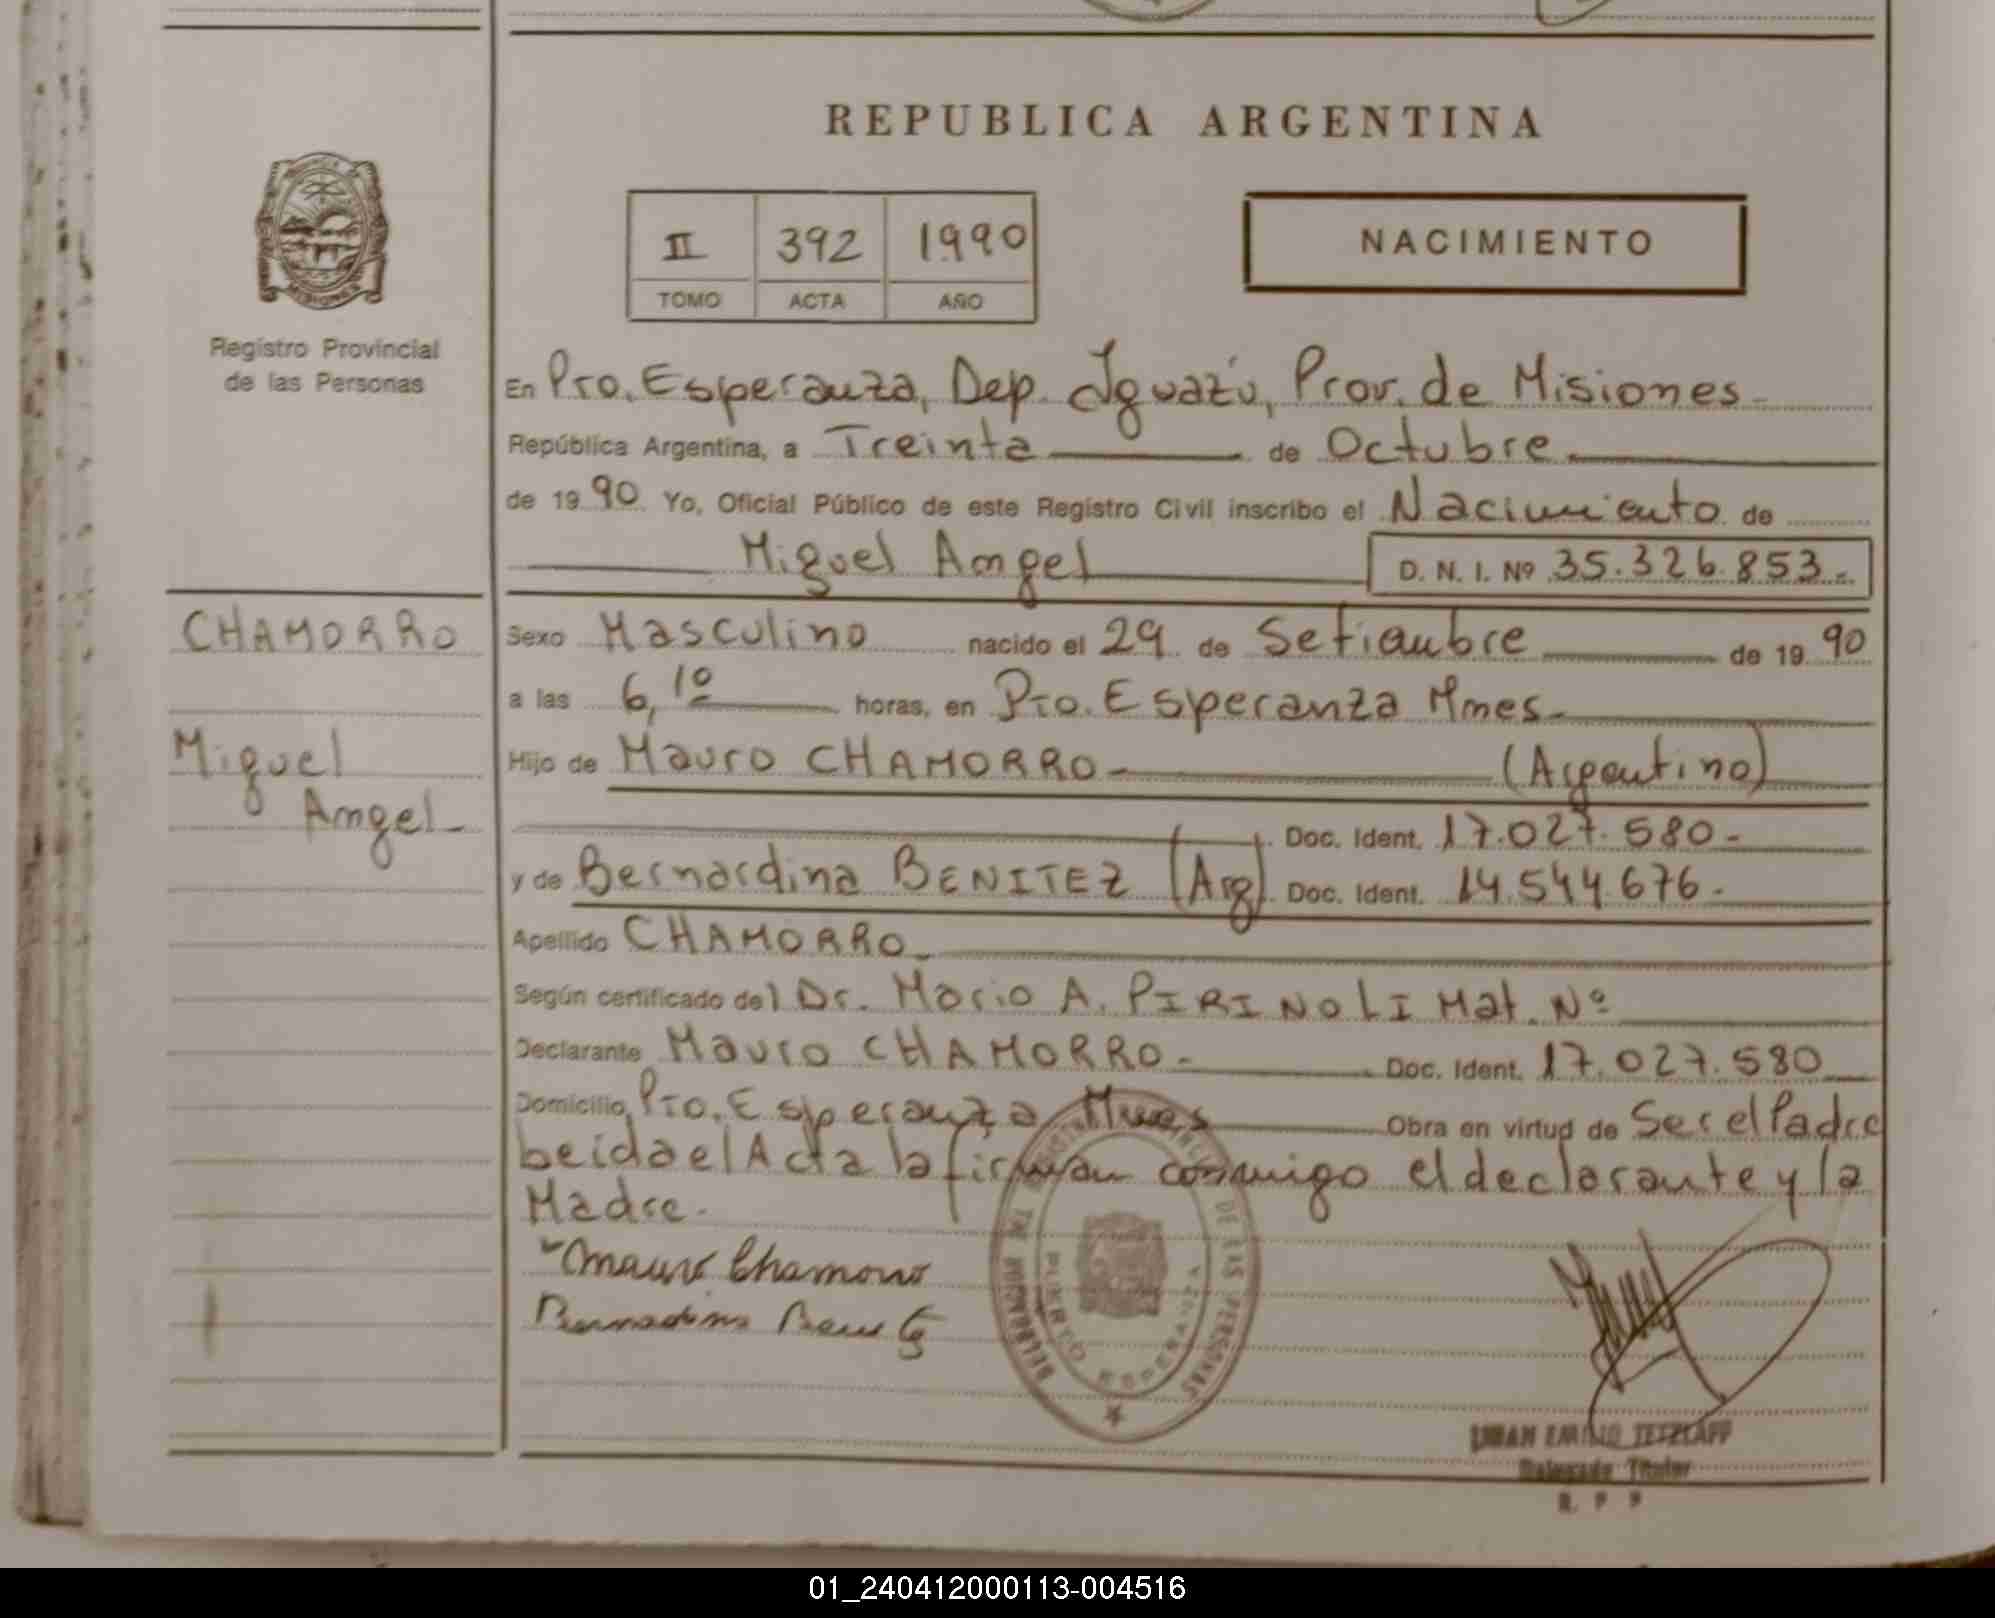 REPUBLICA ARGENTINA
II 392 1990
TOMO ACTA AÑO
NACIMIENTO
MISIONES
Registro Provincial
de las Personas
En Pto. Esperanza, Dep. Iguazú, Prov. de Misiones
República Argentina, a Treinta de Octubre
de 1990 Yo, Oficial Público de este Registro Civil inscribo el Nacimiento de
Miguel Angel D. N. I. Nº 35.326.853.-
CHAMORRO
Miguel
Angel-
Sexo Masculino nacido el 29 de Setiembre de 1990
a las 6,10 horas, en Pto. Esperanza Mnes-
Hijo de Mauro CHAMORRO- (Argentino)
Doc. Ident. 17.027.580-
y de Bernardina BENITEZ (Arg) Doc. Ident. 14.544.676-
Apellido CHAMORRO-
Según certificado del Dr. Mario A. PIRINOLI Mat. Nº
Declarante Mauro CHAMORRO- Doc. Ident. 17.027.580
Domicilio Pto. Esperanza Mnes Obra en virtud de Ser el Padre
Leida el Acta la firman conmigo el declarante y la
Madre.
Mauro Chamorro
Bernardina Benitez
DE LAS PERSONAS
PUERTO ESPERANZA
EMILIO TETZLAFF
Delegado Titular
R. P. P
01_240412000113-004516